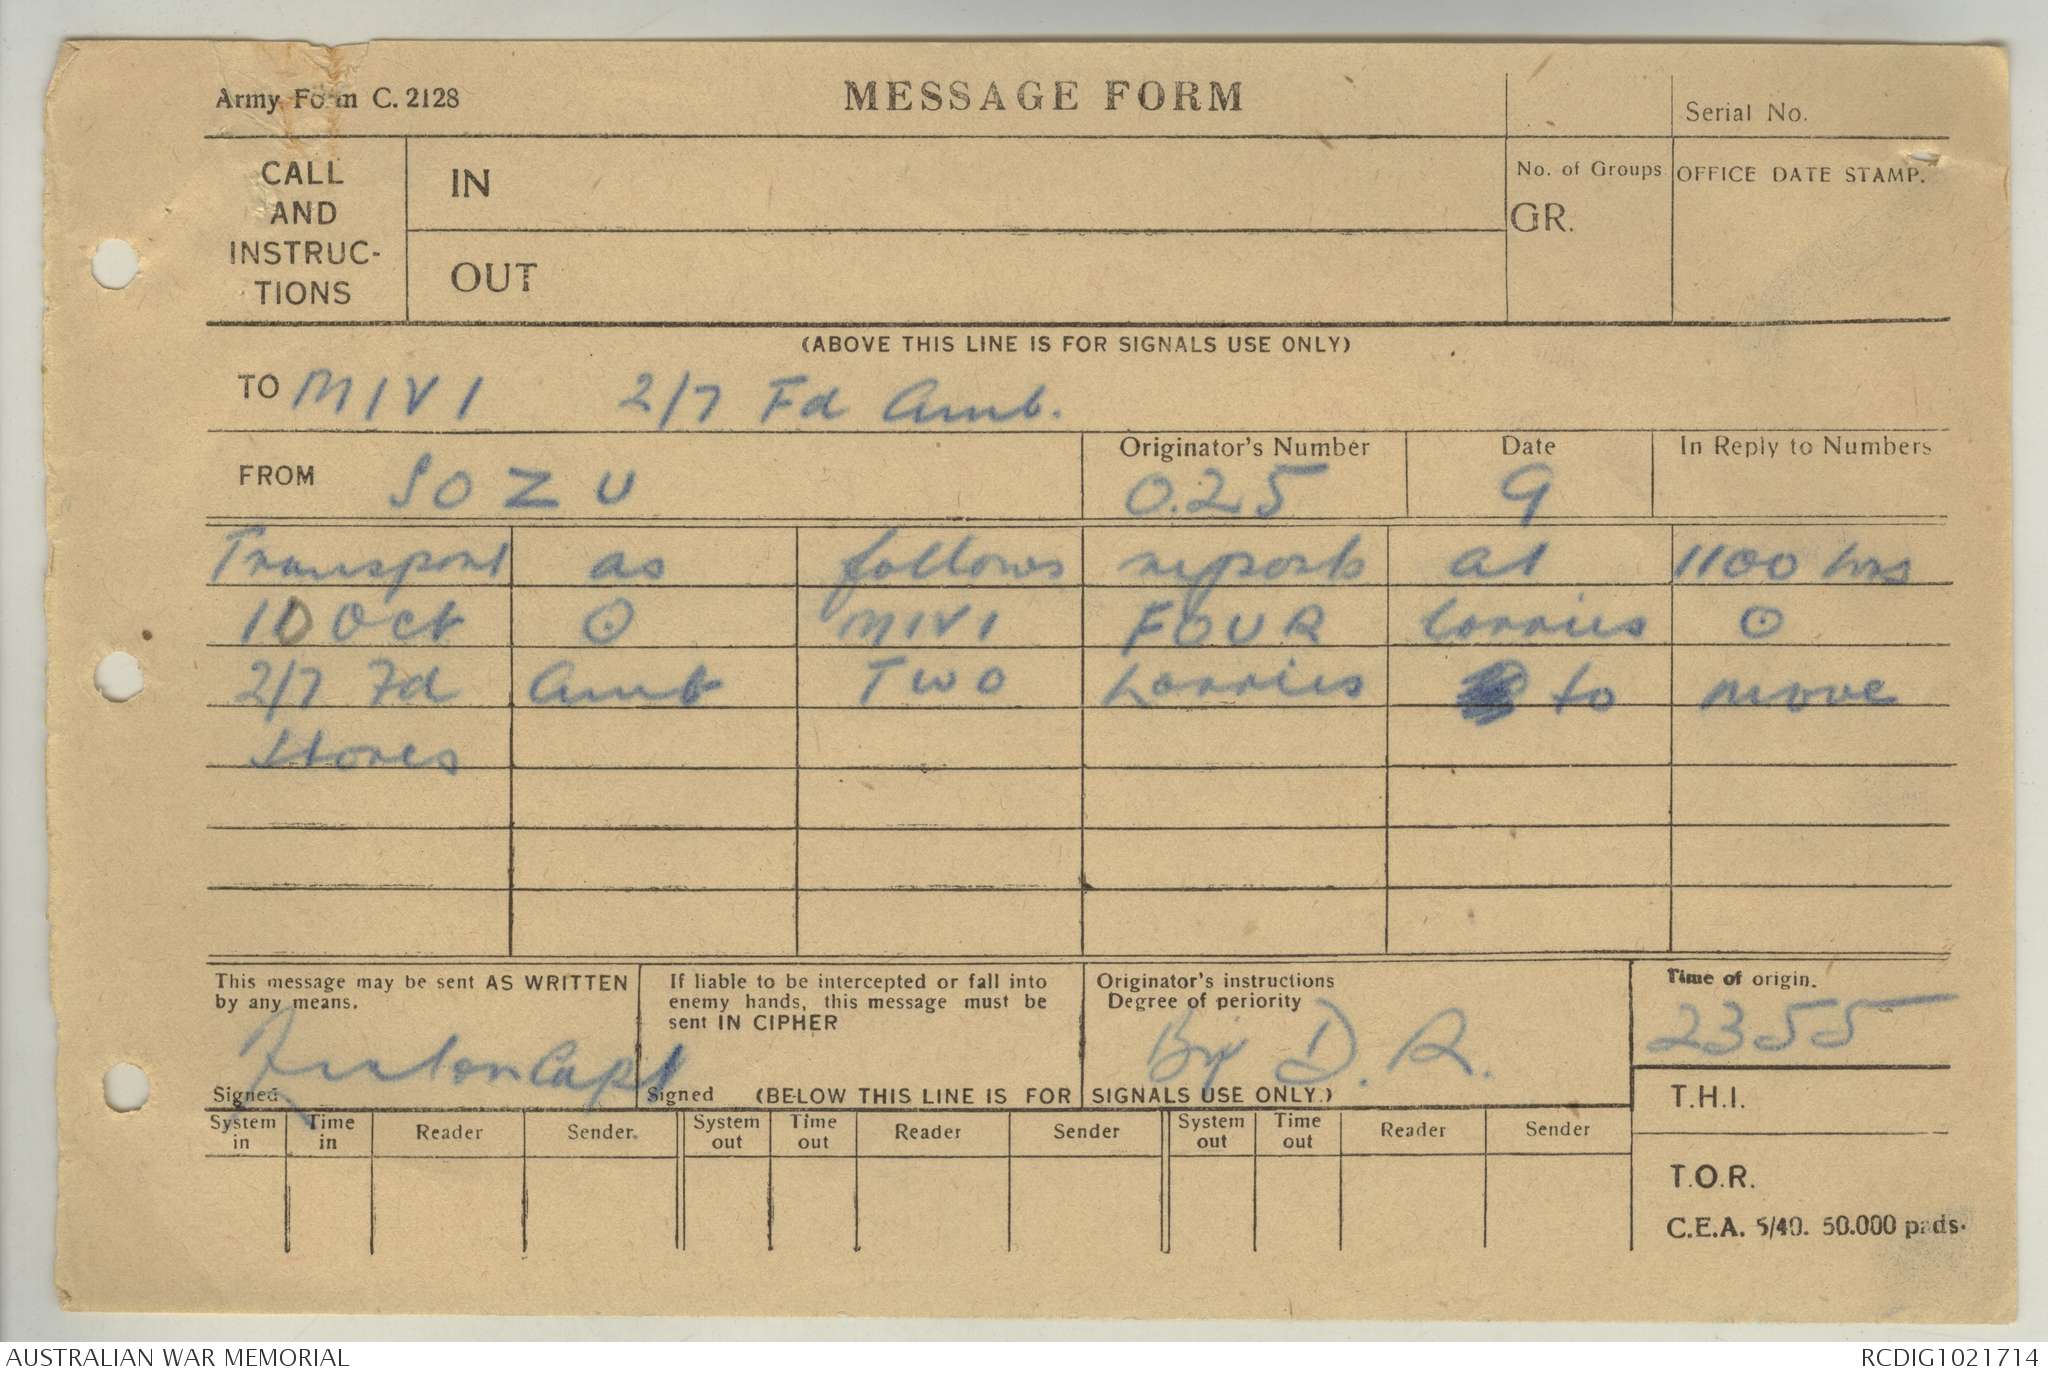 Army Form C. 2128
MESSAGE FORM
Serial No.
CALL
AND
INSTRUC-
TIONS
IN
OUT
No. of Groups
GR.
OFFICE DATE STAMP.
(ABOVE THIS LINE IS FOR SIGNALS USE ONLY)
TO MIVI 2/7 Fd Amb.
FROM SOZU
Originator's Number
0.25
Date
9
In Reply to Numbers
Transport as follows reports at 1100 hrs
10 Oct O MIVI FOUR Lorries O
2/7 Fd Amb TWO Lorries to move
Stores
This message may be sent AS WRITTEN
by any means.
Capt
Signed
If liable to be intercepted or fall into
enemy hands, this message must be
sent IN CIPHER
Signed
Originator's instructions
Degree of periority
By D.R.
Time of origin.
2355
(BELOW THIS LINE IS FOR SIGNALS USE ONLY.)
T.H.I.
System in Time in Reader Sender. System out Time out Reader Sender System out Time out Reader Sender
T.O.R.
C.E.A. 5/40. 50.000 pads.
AUSTRALIAN WAR MEMORIAL
RCDIG1021714